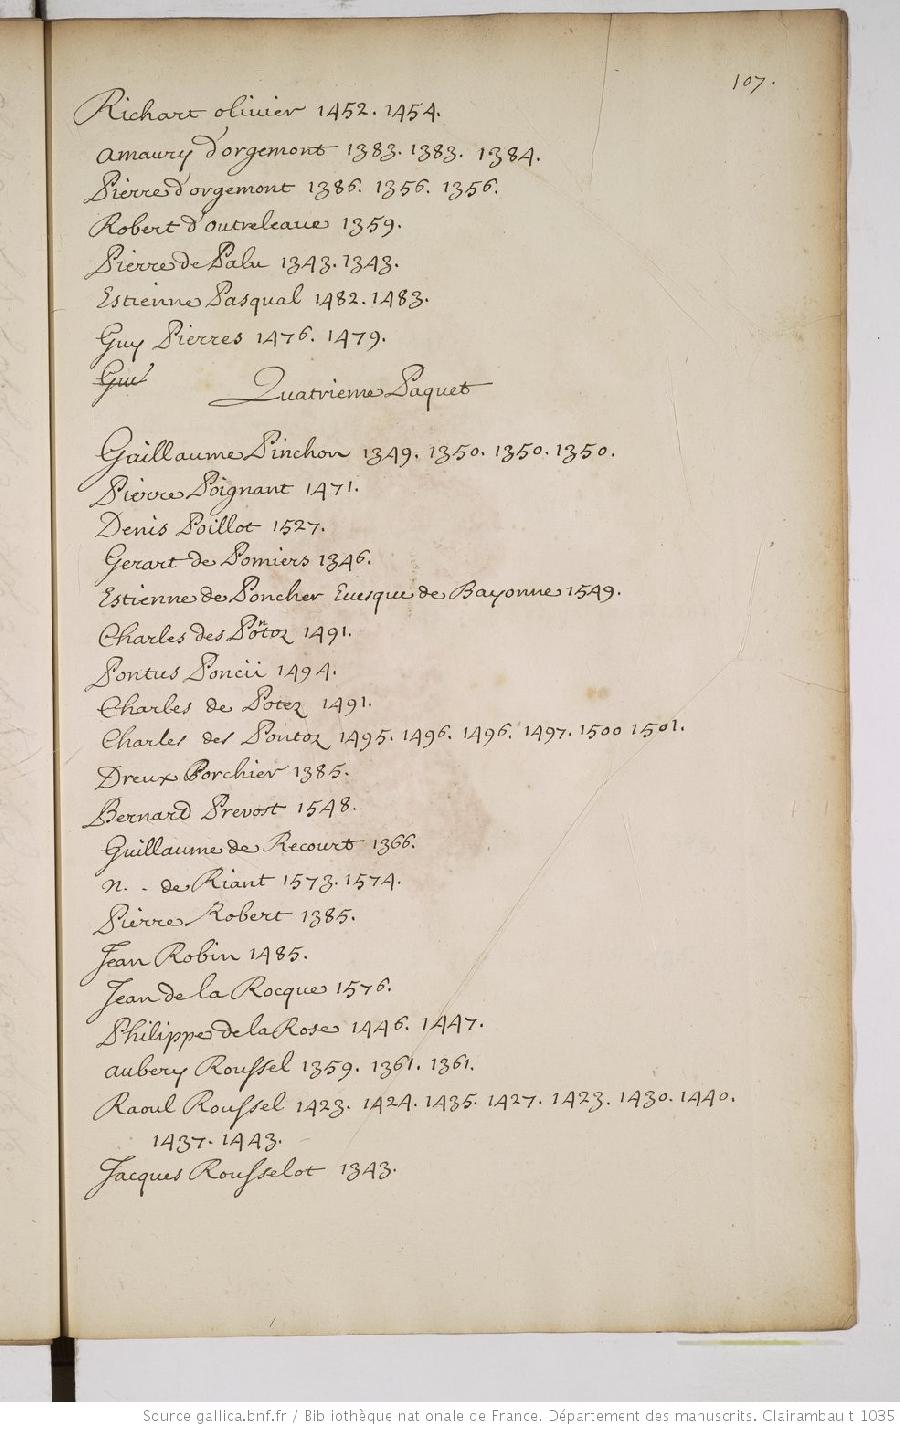 107.
Richart olivier 1452. 1454.
amaury d'orgemont 1383. 1383. 1384.
Pierre d'orgemont 1386. 1356. 1356.
Robert d'outreleaue 1359.
Pierre de Palu 1343. 1343.
Estienne Pasqual 1482. 1483.
Guy Pierres 1476. 1479.
Gui
Quatrieme Paquet
Guillaume Pinchon 1349. 1350. 1350. 1350.
Pierre Poignant 1471.
Denis Poillot 1527.
Gerart de Pomiers 1346.
Estienne de Poncher Euesque de Bayonne 1549.
Charles des Pontoz 1491.
Pontus Poncii 1494.
Charles de Potez 1491.
Charles des Pontoz 1495. 1496. 1496. 1497. 1500 1501.
Dreux Porchier 1385.
Bernard Prevost 1548.
Guillaume de Recourt 1366.
n. . de Riant 1573. 1574.
Pierre Robert 1385.
Jean Robin 1485.
Jean de la Rocque 1576.
Philippe de la Rose 1446. 1447.
aubery Roussel 1359. 1361. 1361.
Raoul Roussel 1423. 1424. 1435. 1427. 1423. 1430. 1440.
1437. 1443.
Jacques Rousselot 1343.
Source gallica.bnf.fr / Bibliothèque nationale de France. Département des manuscrits. Clairambault 1035